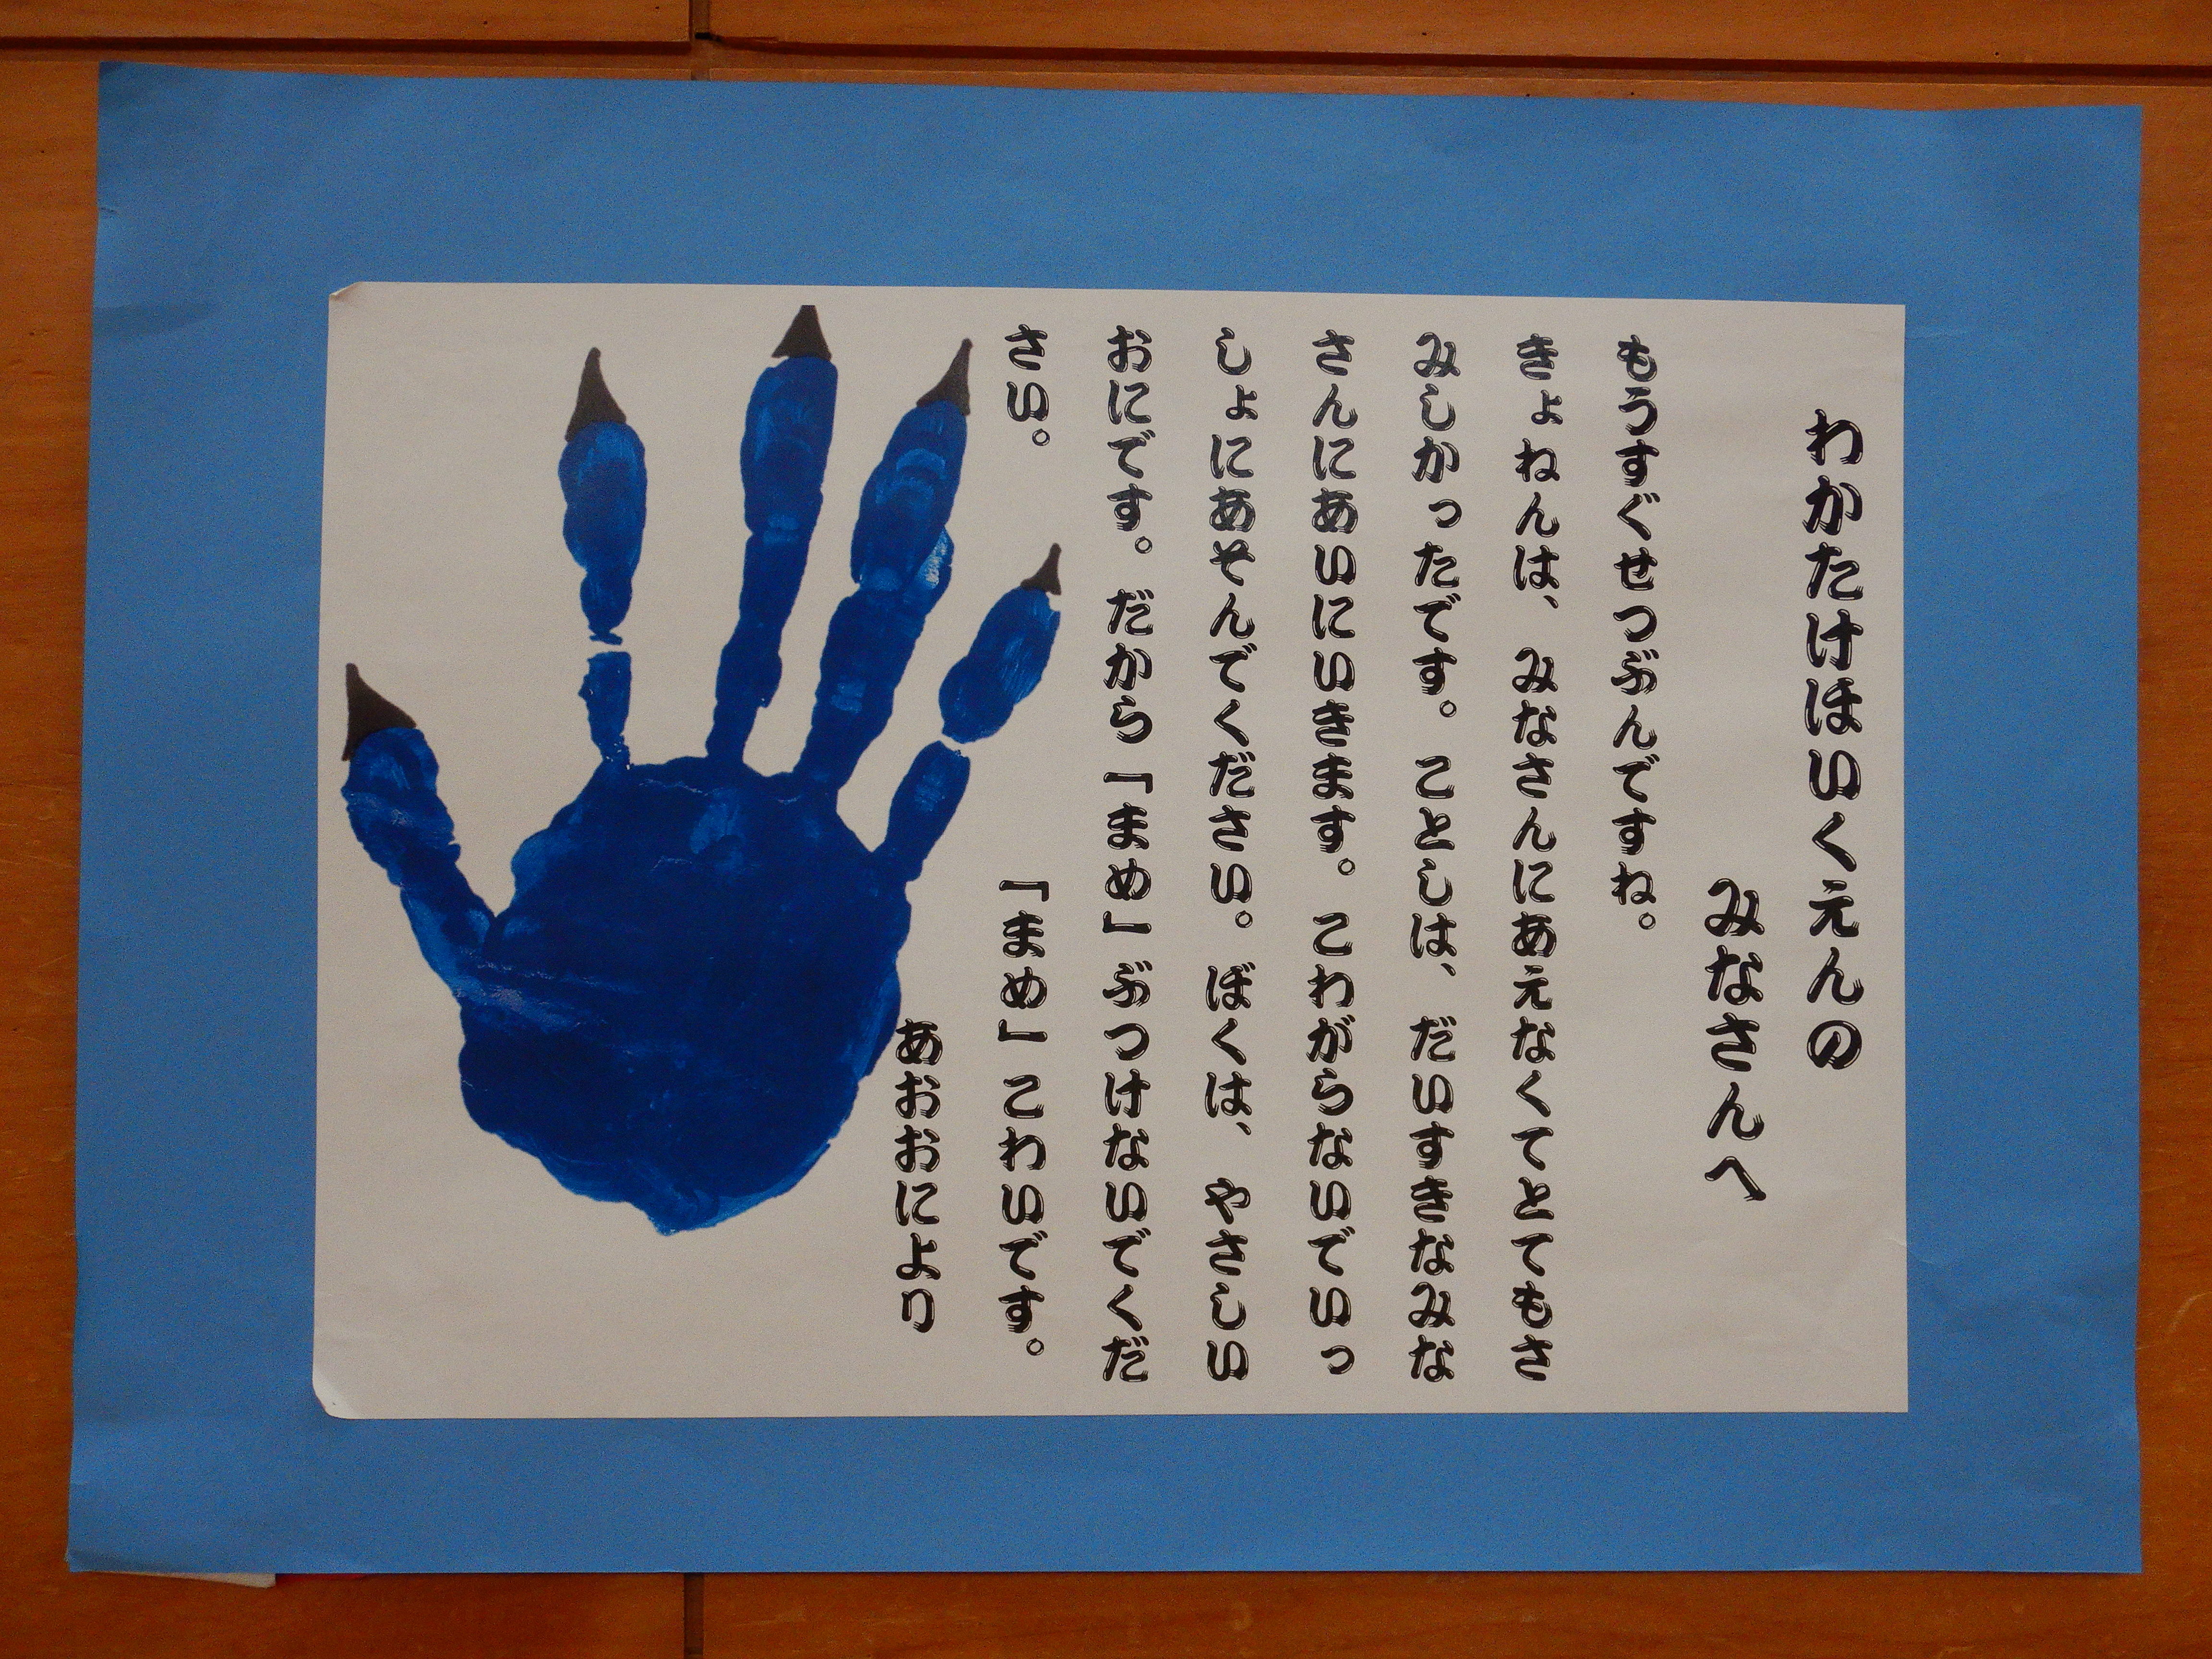 わかたけほいくえんの
みなさんへ
もうすぐせつぶんですね。
きょねんは、みなさんにあえなくてとてもさ
みしかったです。ことしは、だいすきなみな
さんにあいにいきます。こわがらないでいっ
しょにあそんでください。ぼくは、やさしい
おにです。だから「まめ」ぶつけないでくだ
さい。
「まめ」こわいです。
あおおにより